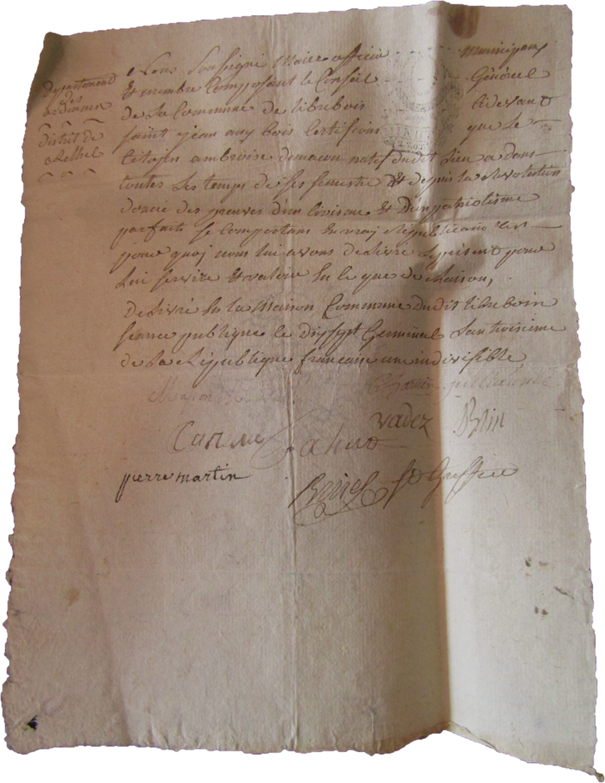 departement
des
ardennes
district de
Rethel
Nous Soussigné Maire officier municipaux
& membre Composant le Conseil Général
de la Commune de libubois Cidevant
saint jean aux bois Certifions que le
Citoyen ambroise demacon natif dudit lieu a dans
toutes les temps de
& depuis la Revolution
donné des preuves d'un Civisme & d'un patriotisme
parfait se Comportans En vray Républicain C'est
pour quoy nous lui avons délivré le présent pour
lui servire & valoire que de Raison,
delivré En la Maison Commune dudit
seance publique le dix sept Germinal Lan troisieme
de la République francaise une indivisible
vadez
pierre martin